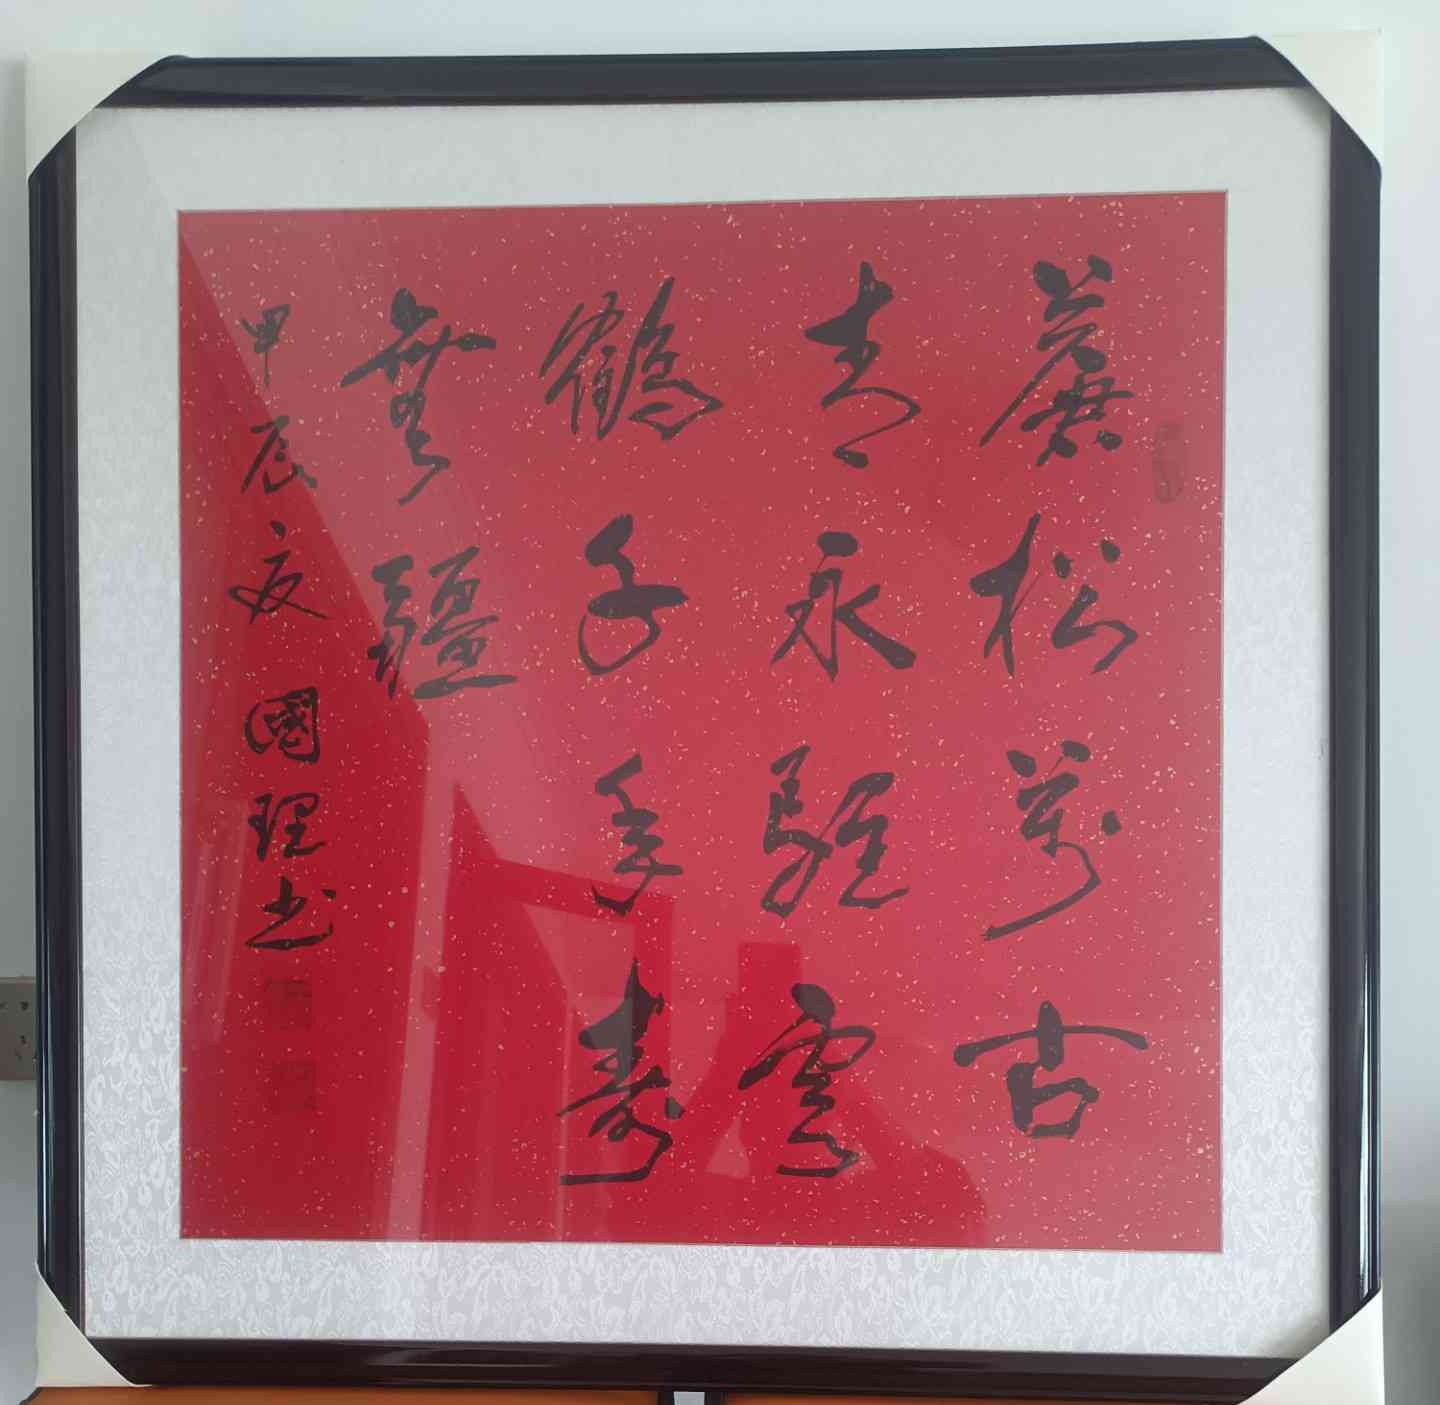 蒼松萬古
青永駐雲
鶴千年壽
無疆
甲辰夏國理书